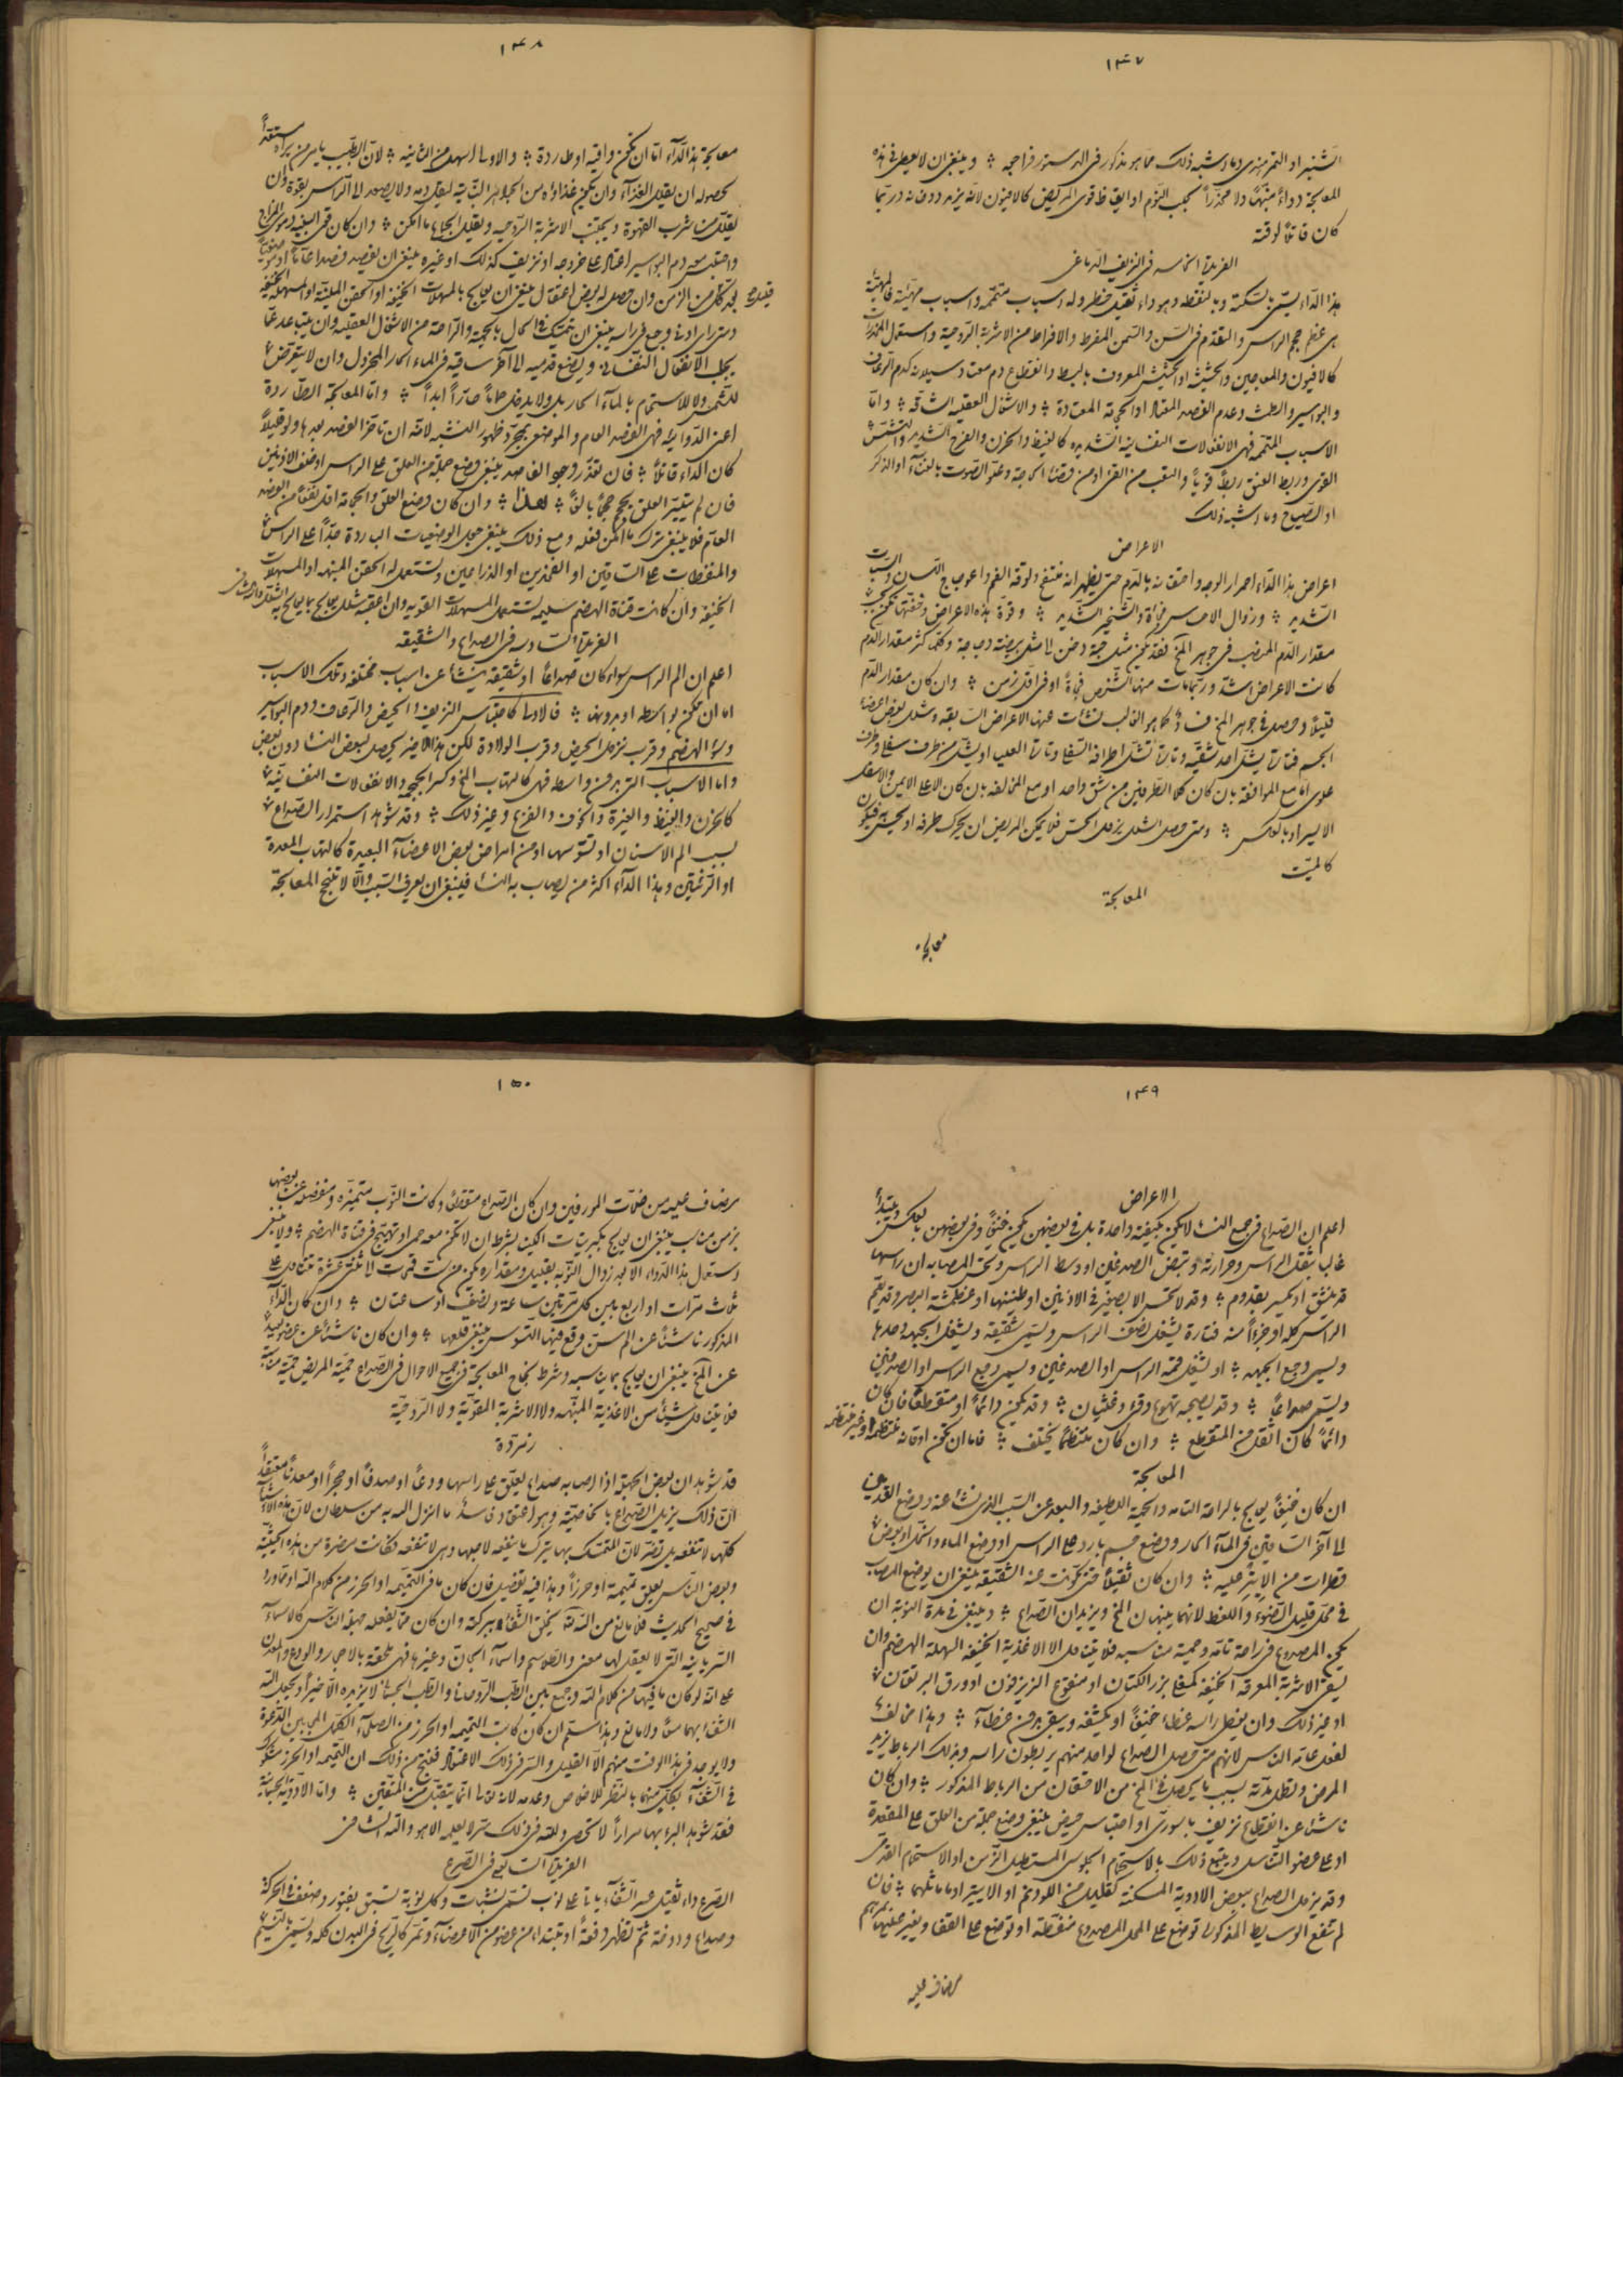 ١٤٧
الشنبر او التمر هندى وما اشبه ذلك مما هو مذكور فى الدستور فراجعه ؞ وينبغى ان لا يعطى فى هذه
المعالجة دواءً منبّهًا ولا مخدّراً يجلب النوم او ايقاظ قوى المريض كالافيون لانه يزيد وربّما
كان قاتلاً لوقته
الفريدة الخامسة فى النزيف الدماغى
هذا الداء يسمّى بالسكتة وبالنقطة وهو داء ثقيل خطر وله اسباب متممة واسباب مهيّئة فالمهيّئة
هى عظم حجم الراس والتقدّم فى السن والسمن المفرط والافراط من الاشربة الروحية واستعمال المخدرات
كالافيون والمعاجين والحشيشة او الحشيش المعروف بالبسط وانقطاع دم معتاد سيلانه كدم الرعاف
والبواسير والطمث وعدم الفصد المعتاد او الحجامة المعتادة ؞ والاشغال العقلية الشاقة ؞ وامّا
الاسباب المتممة فهى الانفعالات النفسانية الشديدة كالغيظ والحزن والفرح الشديد والتشمّس
القوى وربط العنق ربطًا قويّاً والتعب من القئ او من قضاء الحاجة وعلوّ الصوت بالغناء او الذكر
او الصياح وما اشبه ذلك
الاعراض
اعراض هذا الداء احمرار الوجه واحتقانه بالدم حتى يظهر انه منتفخ ولوقة الفم واعوجاج اللسان والسبات
الشديد ؞ وزوال الاحساس فجأة والشخير الشديد ؞ وقوّة هذه الاعراض وخفّتها تكون بحسب
مقدار الدم المنصبّ فى جوهر المخ فقد يكون مثل حبّة دخن او مثل بيضة دجاجة وكلّما كثر مقدار الدم
كانت الاعراض اشدّ وربّما مات منها الشخص فجأةً او فى اقل زمن ؞ وان كان مقدار الدم
قليلاً وحصل فى جوهر المخ فساد كما هو الغالب نشأت عنها الاعراض السابقة وشلل بعض اعضاء
الجسم فتارة يشلّ احد شقّيه وتارة تشلّ اطرافه السفلى وتارة العليا او يشلّ طرف سفلى وطرف
علوى امّا مع الموافقة بان كان كلا الطرفين من شق واحد او مع المخالفة بان كان الاعلى الايمن والاسفل
الايسر او بالعكس ؞ ومتى حصل الشلل يزول الحسّ فلا يمكن المريض ان يحرك طرفه او يحسّ به فيكون
كالميّت
المعالجة
معالجة
١٤٨
معالجة هذا الداء امّا ان تكون واقية او طاردة ؞ والاولى اسهل من الثانية ؞ لان الطبيب يامر من يراه مستعدّاً
لحصوله ان يقلل الغذاء وان يكون غذاؤه من الجواهر النباتية ليقلّ دمه ولا يصعد الى الراس بقوة وان
يقلل من شرب القهوة ويجتنب الاشربة الروحية ويقلل الجماع ما امكن ؞ وان كان قوى البنية دموى المزاج
واحتبس معه دم البواسير اعتاد على خروجه او نزيف كذلك او غيره ينبغى ان يفصد فصداً عامّاً او موضعيّاً
قليلا
بعد كل من الزمن وان حصل له بعض اعتقال ينبغى ان يعالج بالمسهلات الخفيفة او الحقن الملينة او المسهلة الخفيفة
ومتى راى ادنى وجع فى راسه ينبغى ان يتمسّك فى الحال بالحمية والراحة من الاشغال العقلية وان يتباعد عمّا
يجلب الانفعال النفسانى ويضع قدميه الى آخر ساقيه فى الماء الحار المخردل وان لا يتعرّض
للشمس ولا للاستحمام بالماء الحار بل ولا يدخل حمّاماً حارّاً ابداً ؞ وامّا المعالجة الطاردة
اعنى الدوائية فهى الفصد العام والموضعى بمجرّد ظهور النشبة لانه ان تاخر الفصد بعدها ولو قليلاً
كان الداء قاتلاً ؞ فان تعذّر وجود الفاصد ينبغى وضع جملة من العلق على الراس او خلف الاذنين
فان لم يتيسّر العلق يحجم حجماً بالغًا ؞ هذا ؞ وان كان وضع العلق والحجامة اقل نفعًا من الفصد
العام فلا ينبغى ترك ما امكن فعله ومع ذلك ينبغى جعل الوضعيات الباردة جدّاً على الراس
والمنفطات على الساقين او الفخذين او الذراعين وتستعمل له الحقن المنبهة او المسهلات
الخفيفة وان كانت قناة الهضم سليمة تستعمل المسهلات القوية وان اعقبه شلل يعالج بما يعالج به الشلل
الفريدة السادسة فى الصداع والشقيقة
اعلم ان الم الراس سواء كان صداعًا او شقيقة ينشأ عن اسباب مختلفة وتلك الاسباب
اما ان تكون بواسطة او بدونها ؞ فالاولى كاحتباس النزيف والحيض والرعاف ودم البواسير
وسوء الهضم وقرب نزول الحيض وقرب الولادة لكن هذا الاخير يحصل لبعض النساء دون بعض
وامّا الاسباب التى بدون واسطة فهى كالتهاب المخ وكسر الجمجمة والانفعالات النفسانية
كالحزن والغيظ والغيرة والخوف والفزع وغير ذلك ؞ وقد شوهد استمرار الصداع
بسبب الم الاسنان او تسوّسها او من امراض بعض الاعضاء البعيدة كالتهاب المعدة
او الرئتين وهذا الداء اكثر من يصاب به النساء فينبغى ان يعرف السبب والّا لا تنجح المعالجة
١٤٩
الاعراض
اعلم ان الصداع فى جميع النساء لا يكون بكيفية واحدة بل فى بعضهن يكون خفيفًا وفى بعضهن بالعكس ويبتدأ
غالباً بثقل الراس وحرارته وتبض الصدغين او وسط الراس وتحس المصابة ان راسها
قد ينشق او يكسر بقدوم ؞ وقد لا تحس الا بصفير فى الاذنين او طنينها او غطمشة البصر وقد يعمّ
الراس كله او جزءاً منه فتارة يشغل نصف الراس ويسمى شقيقة ويشغل الجبهة وحدها
ويسمى وجع الجبهة ؞ او يشغل قمة الراس او الصدغين ويسمى وجع الراس او الصدغين
ويسمى صداعًا ؞ وقد يصحبه تهوّع وقئ وغثيان ؞ وقد يكون دائماً او متقطّعًا فان كان
دائماً كان اثقل من المتقطع ؞ وان كان متقطّعًا يختلف ؞ فاما ان تكون اوقاته منتظمة او غير منتظمة
المعالجة
ان كان خفيفًا يعالج بالراحة التامة والحمية اللطيفة والبعد عن السبب الذى نشأ عنه ووضع القدمين
الى آخر الساقين فى الماء الحار ووضع جسم بارد على الراس او وضع الماء والخل او بعض
قطرات من الايتير عليه ؞ وان كان ثقيلاً حتى تكوّنت عنه الشقيقة ينبغى ان يوضع المصاب
فى محل قليل الضوء واللغط لانهما ينبهان المخ ويزيدان الصداع ؞ وينبغى فى مدة النوبة ان
يكون المصدوع فى راحة تامّة وحمية مناسبة فلا يتناول الا الاغذية الخفيفة السهلة الهضم وان
يسقى الاشربة المعرقة الخفيفة كمغلى بزر الكتان او منقوع الزيزفون او ورق البرتقان
او غير ذلك وان يغطى راسه غطاءً خفيفًا او يكشفه ويبقى بدون غطاء ؞ وهذا مخالف
لفعل عامة الناس لانهم متى حصل الصداع لواحد منهم يربطون راسه وبذلك الرباط يزيد
المرض وتطول مدته بسبب ما يحصل فى المخ من الاحتقان من الرباط المذكور ؞ وان كان
ناشئا عن انقطاع نزيف باسورى او احتباس حيض ينبغى وضع جملة من العلق على المقعدة
او على اعضاء التناسل ويتبع ذلك بالاستحمام الجلوسى المستطيل الزمن او الاستحمام القدمى
وقد يزول الصداع ببعض الادوية المسكنة كقليل من اللودنم او الايتير او ما ماثلهما ؞ فان
لم تنفع الوسايط المذكورة توضع على المحل المصدوع منفّطة او توضع على القفا ويغير عليها بمرهم
مضاف عليه
١٥٠
مضاف عليه من خلّات المورفين وان كان الصداع متقطّعًا وكانت النوب متميّزة ومنفصلة عن بعضها
بزمن مناسب ينبغى ان يعالج بكبريتات الكينا بشرط ان لا تكون معه حمى او تهيّج فى قناة الهضم ؞ ولا ينبغى
استعمال هذا الدواء الا بعد زوال النوبة بقليل ومقداره يكون من ست قمحات الى ثنتى عشرة تتناول على
ثلاث مرّات او اربع بين كل مرّتين ساعة ونصف او ساعتان ؞ وان كان الداء
المذكور ناشئاً عن الم سن وقع فيها التسوس ينبغى قلعها ؞ وان كان ناشئاً عن عضو بعيد
عن المخ ينبغى ان يعالج بما يناسبه وشرط نجاح المعالجة فى جميع الاحوال فى الصداع حمية المريض حمية مناسبة
فلا يتناول شيئاً من الاغذية المنبّهة ولا الاشربة المقوّية ولا الروحيّة
زمردة
قد شوهد ان بعض الجهلة اذا اصابه صداع يعلّق على راسها ودعاً او صدفًا او حجراً او معدناً معتقداً
انّ ذلك يزيل الصداع بالخاصّية وهو اعتقاد فاسد ما انزل الله به من سلطان لان هذه الاشياء
كلها لا تنفعه بل تضرّ لان المتمسّك بها يترك ما ينفعه لاجلها وهى لا تنفعه فكانت مضرة من هذه الحيثيّة
وبعض الناس يعلق تميمة او حرزاً وهذا فيه تفصيل فان كان ما فى التميمة او الحرز من كلام الله او ما ورد
فى صحيح الحديث فلا مانع من ان الله يخلق الشفاء ببركته وان كان ممّا يفعله جهلة الناس كالاسماء
السريانية التى لا يعقل لها معنى والطلاسم واسماء الجان وغيرها فهى ملحقة بالاحجار والودع والمعدن
على انه لو كان ما فيها من كلام الله وجمع بين الطب الروحانى والطب الجسمانى لا يزيده الّا خيراً ويجعل الله
الشفاء بهما معًا ولا مانع وهذا مسلّم ان كان كاتب التميمة او الحرز من الصلحاء الكمّل المجابين الدعوة
ولا يوجد فى هذا الوقت منهم الّا القليل والسر فى ذلك الاعتقاد فنتج من ذلك ان التميمة او الحرز مشكوك
فى الشفاء بكل منهما بالنظر للاخلاص وعدمه لانه تعالى انما يتقبّل من المتقين ؞ وامّا الادوية الجسمانية
فقد شوهد البرء بها مراراً لا تحصى ولله فى ذلك سرّ لا يعلمه الا هو والله الشافى
الفريدة السابعة فى الصرع
الصرع داء ثقيل عسر الشفاء ياتى على نوب تسمّى تشنّجات وكل نوبة تسبق بفتور وضعف فى الحركة
وصداع ودوخة ثمّ تظهر دفعةً او تبتدئ من عضو من الاعضاء وتمرّ كالريح فى البدن كله ويسمّى بالنسيم